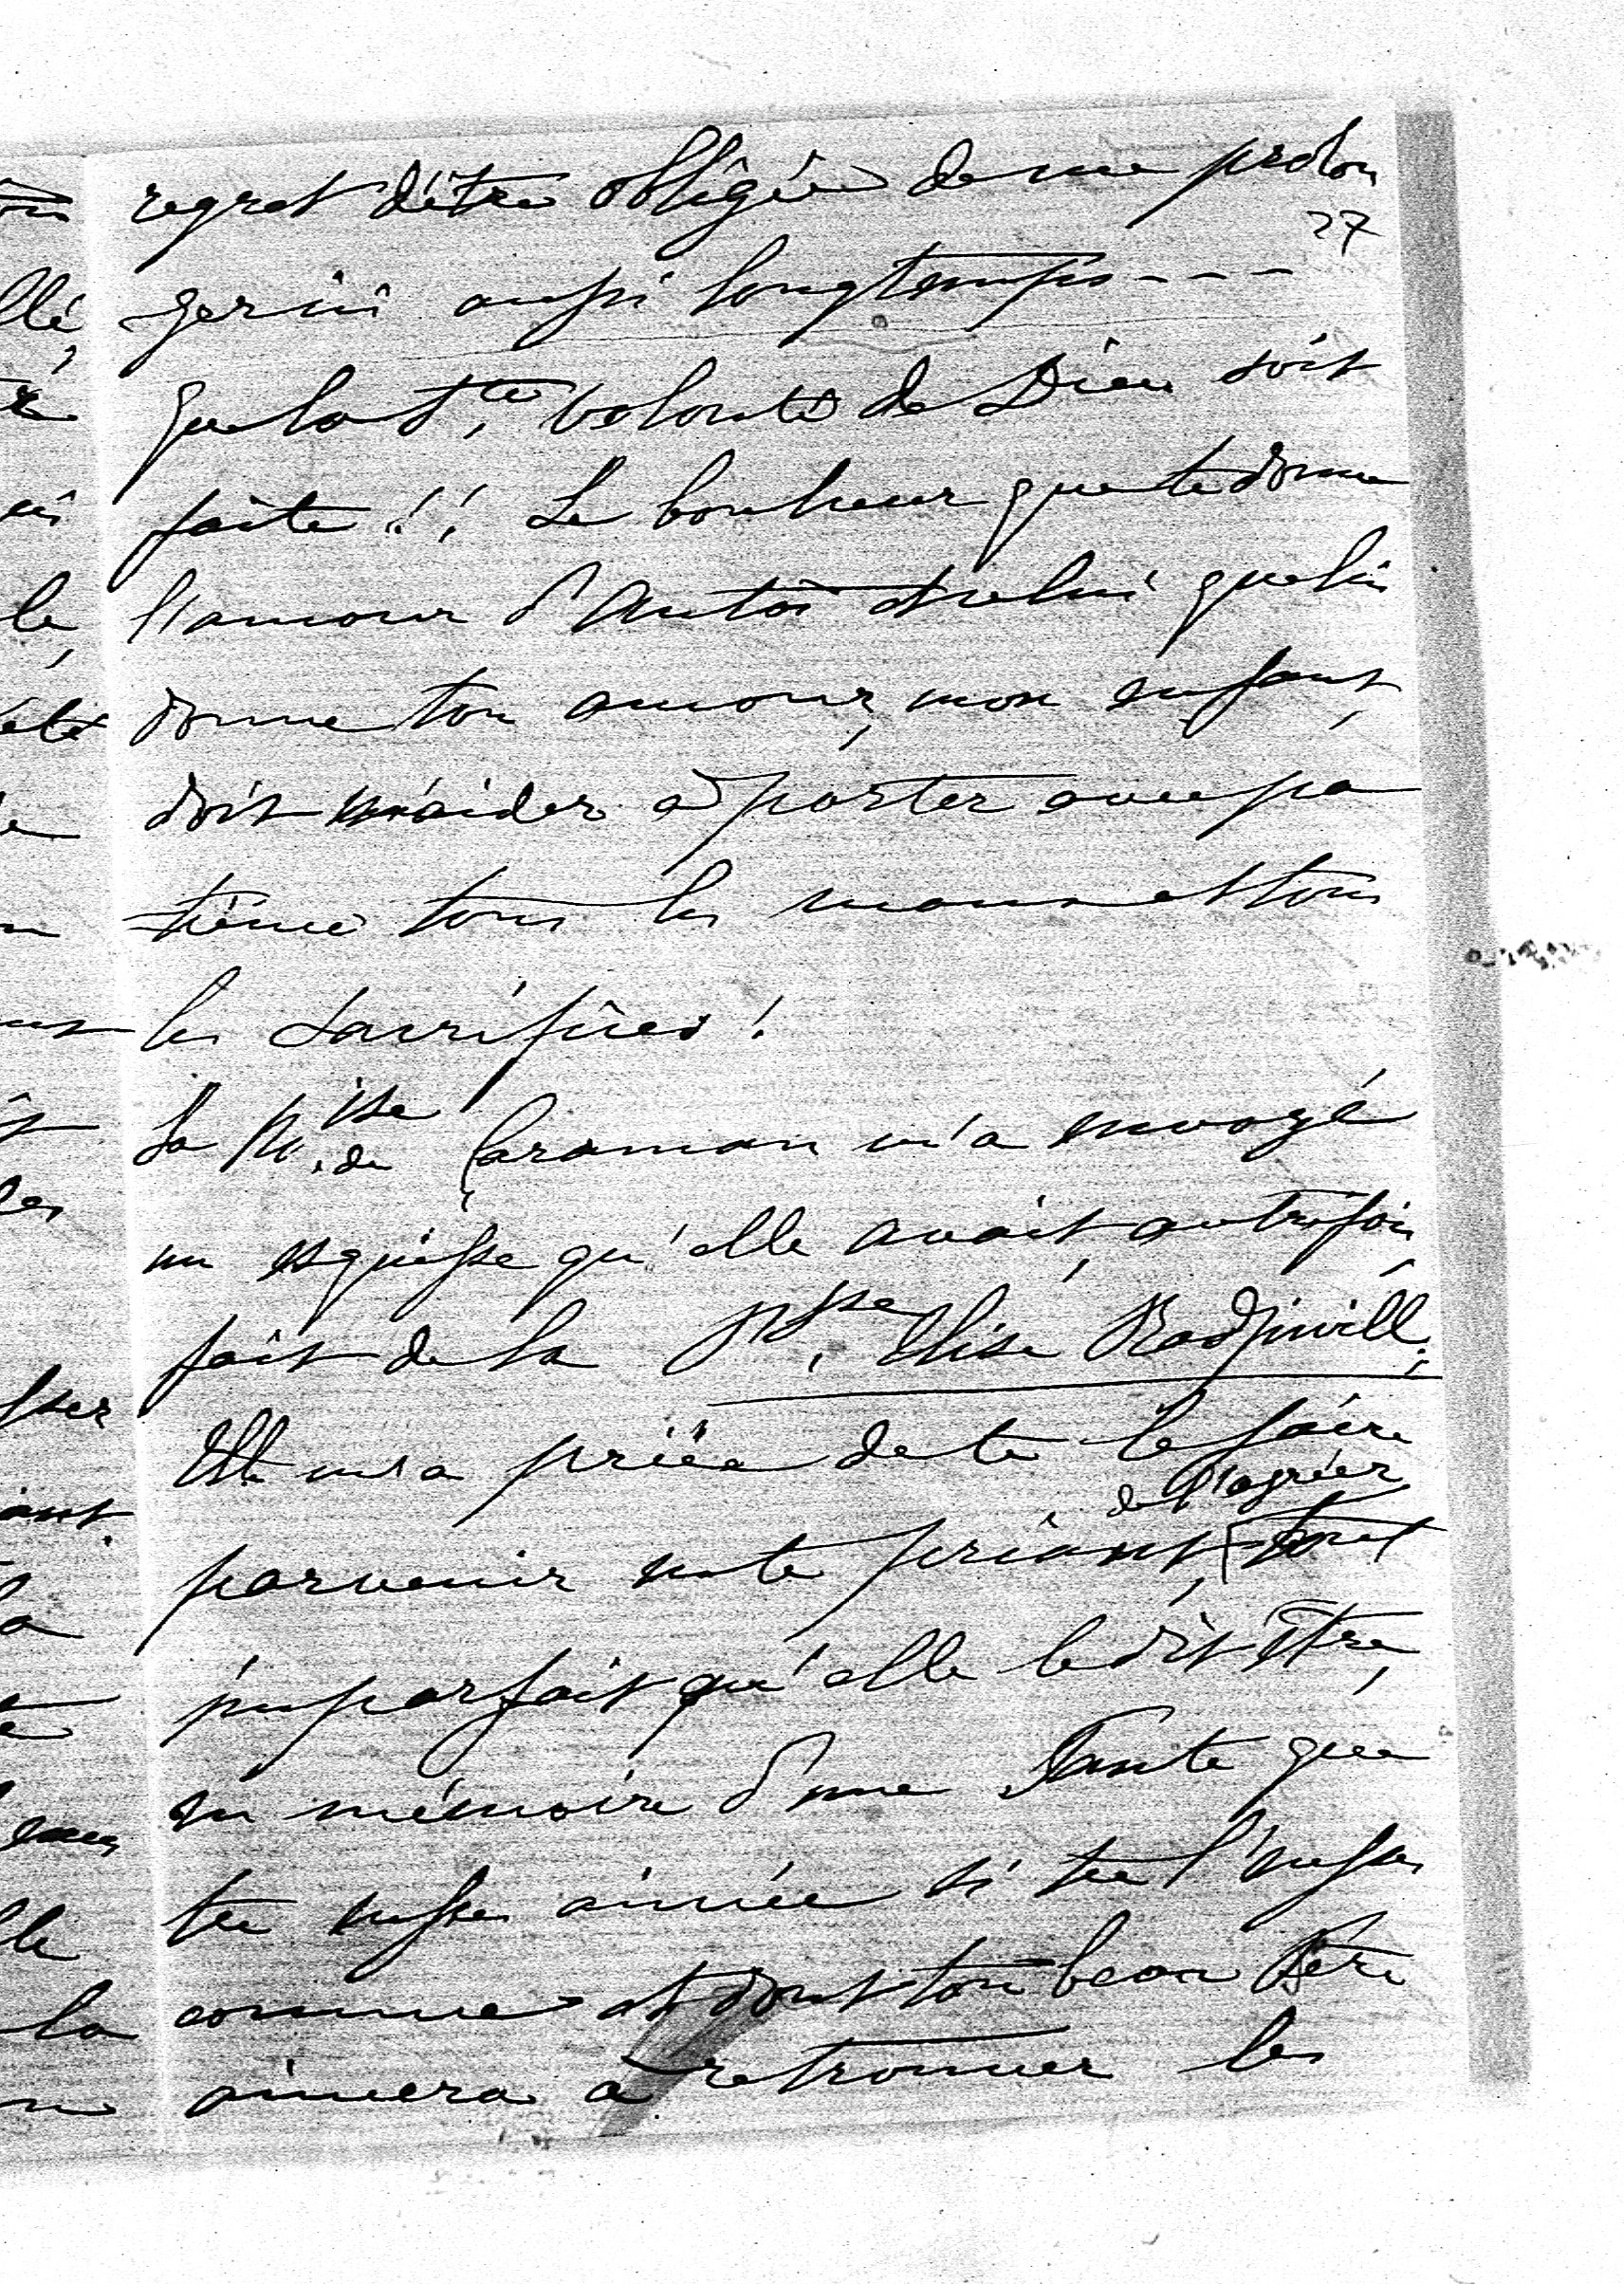 regret d'être obligée de me prolon
27
ger ici aussi longtemps - - -
que la Ste volonté de Dieu soit
faite !! Le bonheur que te donne
l'amour d'Antoi et celui que lui
donne ton amour, mon enfant,
doit m'aider à porter avec pa
tience tous les maux et tous
les sacrifices !
La Mise de Caraman m'a envoyé
un esquisse qu'elle avait, autrefois,
fait de la Psse Elise Radziwill.
Elle m'a priée de te le faire
parvenir en te priant, de l'agréer tout
imparfait qu'elle le dit être,
en mémoire d'une Tante que
tu eusses aimée si tu l'eusses
connue et dont ton beau Père
aimera à retrouver les